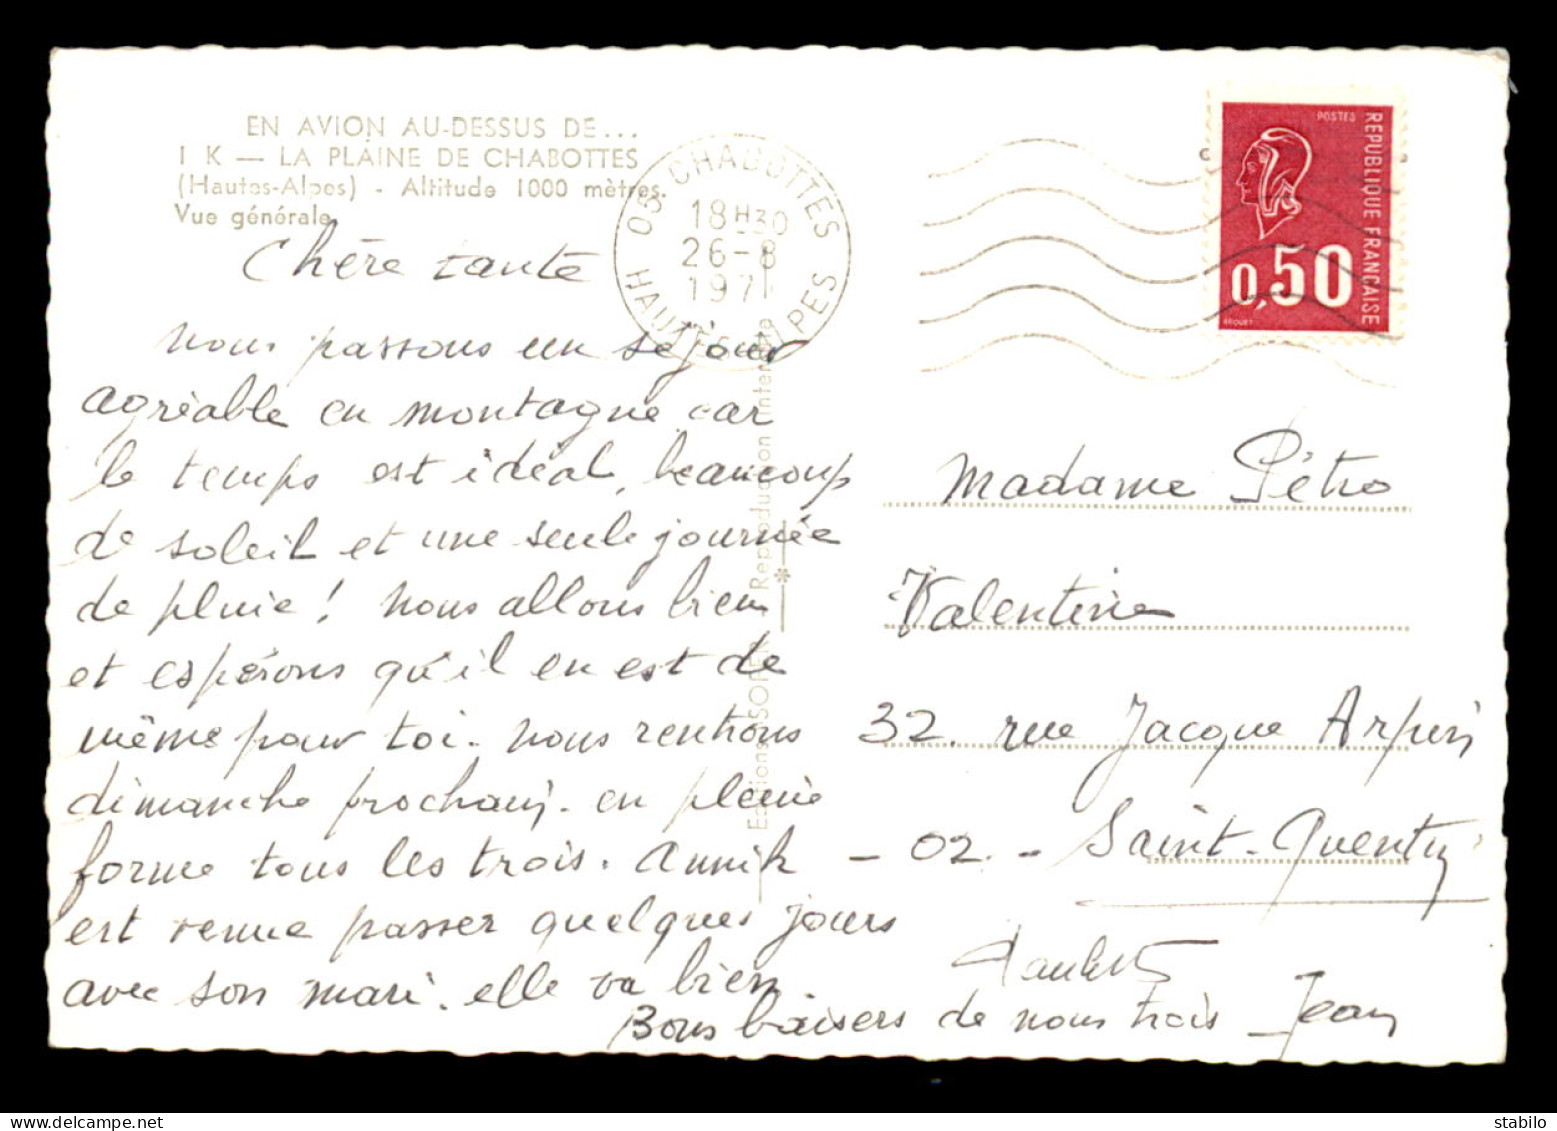 EN AVION AU-DESSUS DE...
1 K — LA PLAINE DE CHABOTTES
(Hautes-Alpes) - Altitude 1000 mètres.
Vue générale
05 CHABOTTES
18H30
26-8
1971
HAUTES ALPES
POSTES
REPUBLIQUE FRANÇAISE
0,50
BEQUET
Chère tante
nous passons un séjour
agréable en montagne car
le temps est idéal, beaucoup
de soleil et une seule journée
de pluie! nous allons bien
et espérons qu'il en est de
même pour toi. nous rentrons
dimanche prochain. en pleine
forme tous les trois. Annik
est venue passer quelques jours
avec son mari. elle va bien.
Bons baisers de nous trois Jean
Editions Reproduction
Madame Pétro
Valentine
32. rue Jacque Arpin
- 02 - Saint-Quentin
delcampe.net
stabilo